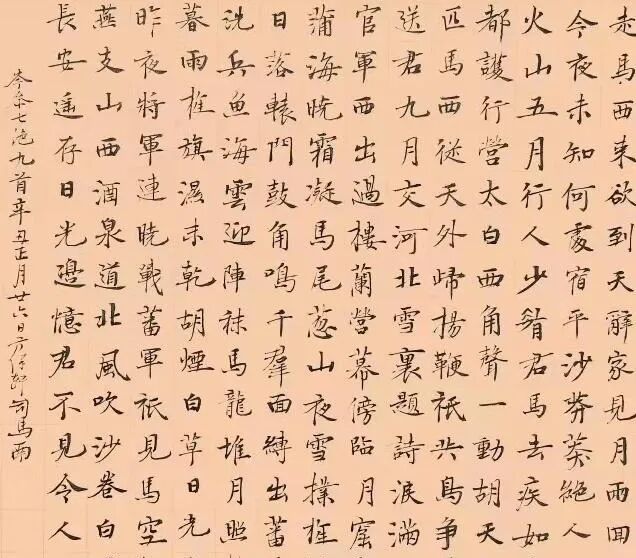 走馬西來欲到天辭家見月兩回
今夜未知何處宿平沙莽莽絕人
火山五月行人少看君馬去疾如
都護行營太白西角聲一動胡天
匹馬西從天外歸揚鞭祇共鳥爭
送君九月交河北雪裏題詩淚滿
官軍西出過樓蘭營幕傍臨月窟
蒲海曉霜凝馬尾葱山夜雪撲旌
日落轅門鼓角鳴千羣面縛出蕃
洗兵魚海雲迎陣秣馬龍堆月照
暮雨旌旗濕未乾胡煙白草日光
昨夜將軍連曉戰蕃軍祇見馬空
燕支山西酒泉道北風吹沙卷白
長安遙在日光邊憶君不見令人
岑參七絕九首辛丑正月廿六日司馬雨